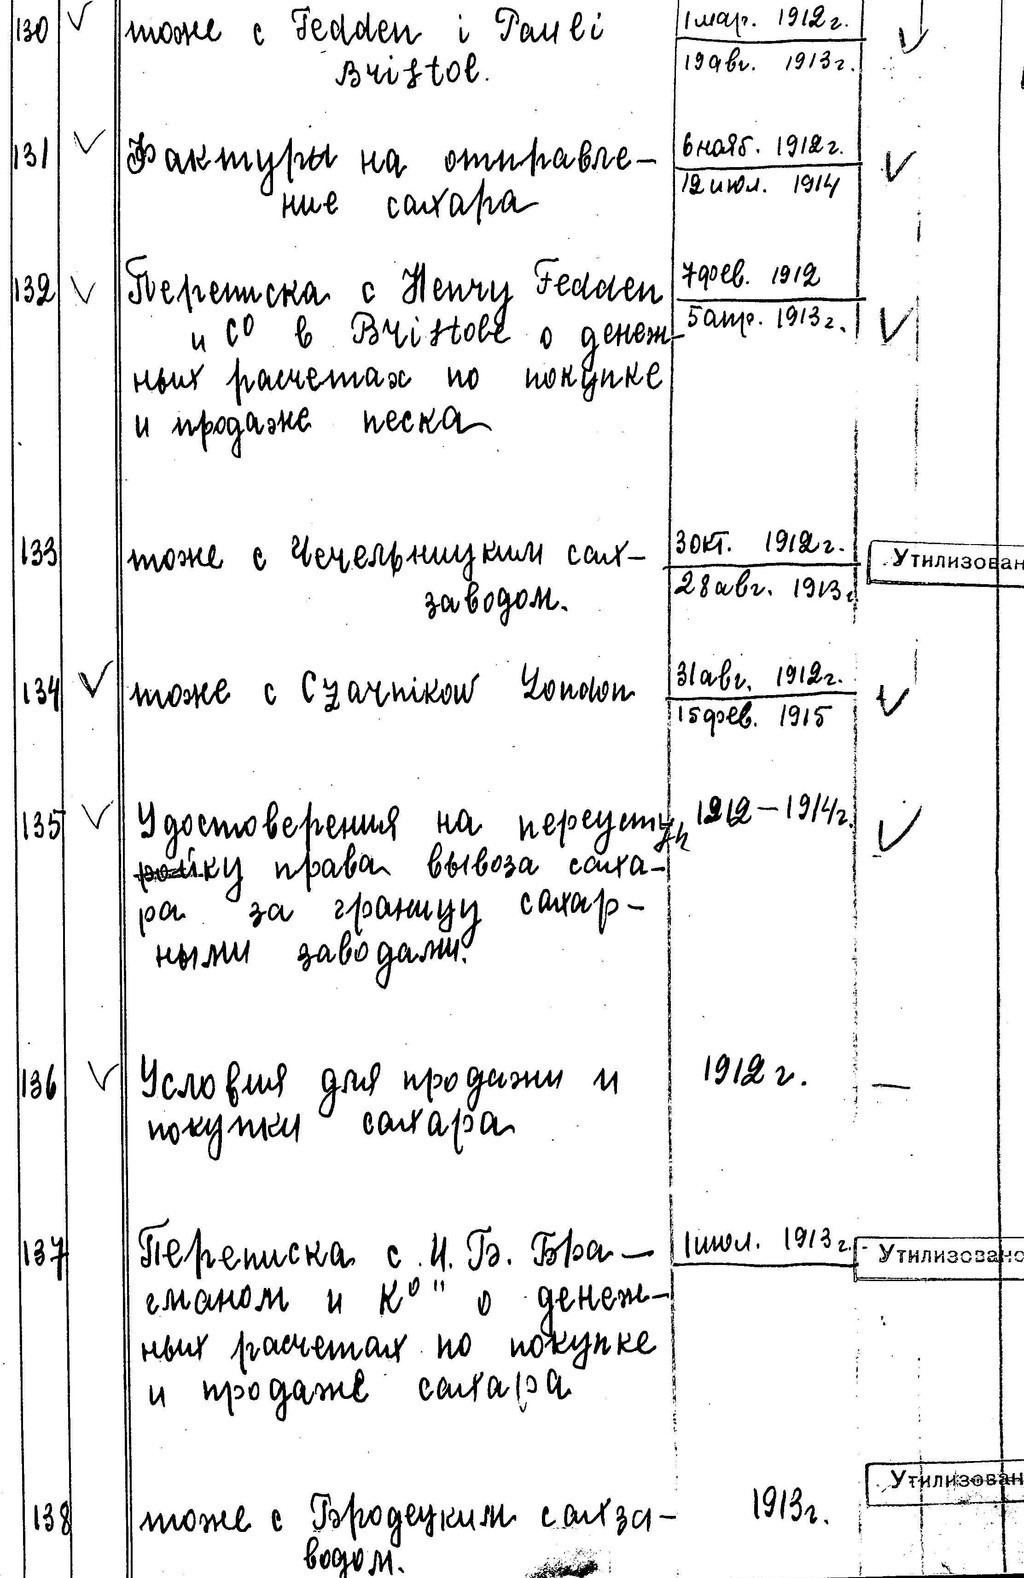 130 тоже с Fedden i Pauli 1 мар. 1912 г.
Bristol. 19 авг. 1913 г.
131 Фактуры на отправле- 6 нояб. 1912 г.
ние сахара 12 июл. 1914
132 Переписка с Henry Fedden 7 фев. 1912
и Cº в Bristole о денеж- 5 апр. 1913 г.
ных расчетах по покупке
и продаже песка
133 тоже с Чечельницким сах- 3 окт. 1912 г. Утилизован
заводом. 28 авг. 1913 г
134 тоже с Czarnikow London 31 авг. 1912 г.
15 фев. 1915
135 Удостоверения на переуст 1912-1914 г.
йку права вывоза саха-
ра за границу сахар-
ными заводами.
136 Условия для продажи и 1912 г.
покупки сахара
137 Переписка с И. Б. Бра- 1 июл. 1913 г. Утилизовано
гманом и Кº" о денеж-
ных расчетах по покупке
и продаже сахара
Утилизован
138 тоже с Бродецким сахза- 1913 г.
водом.